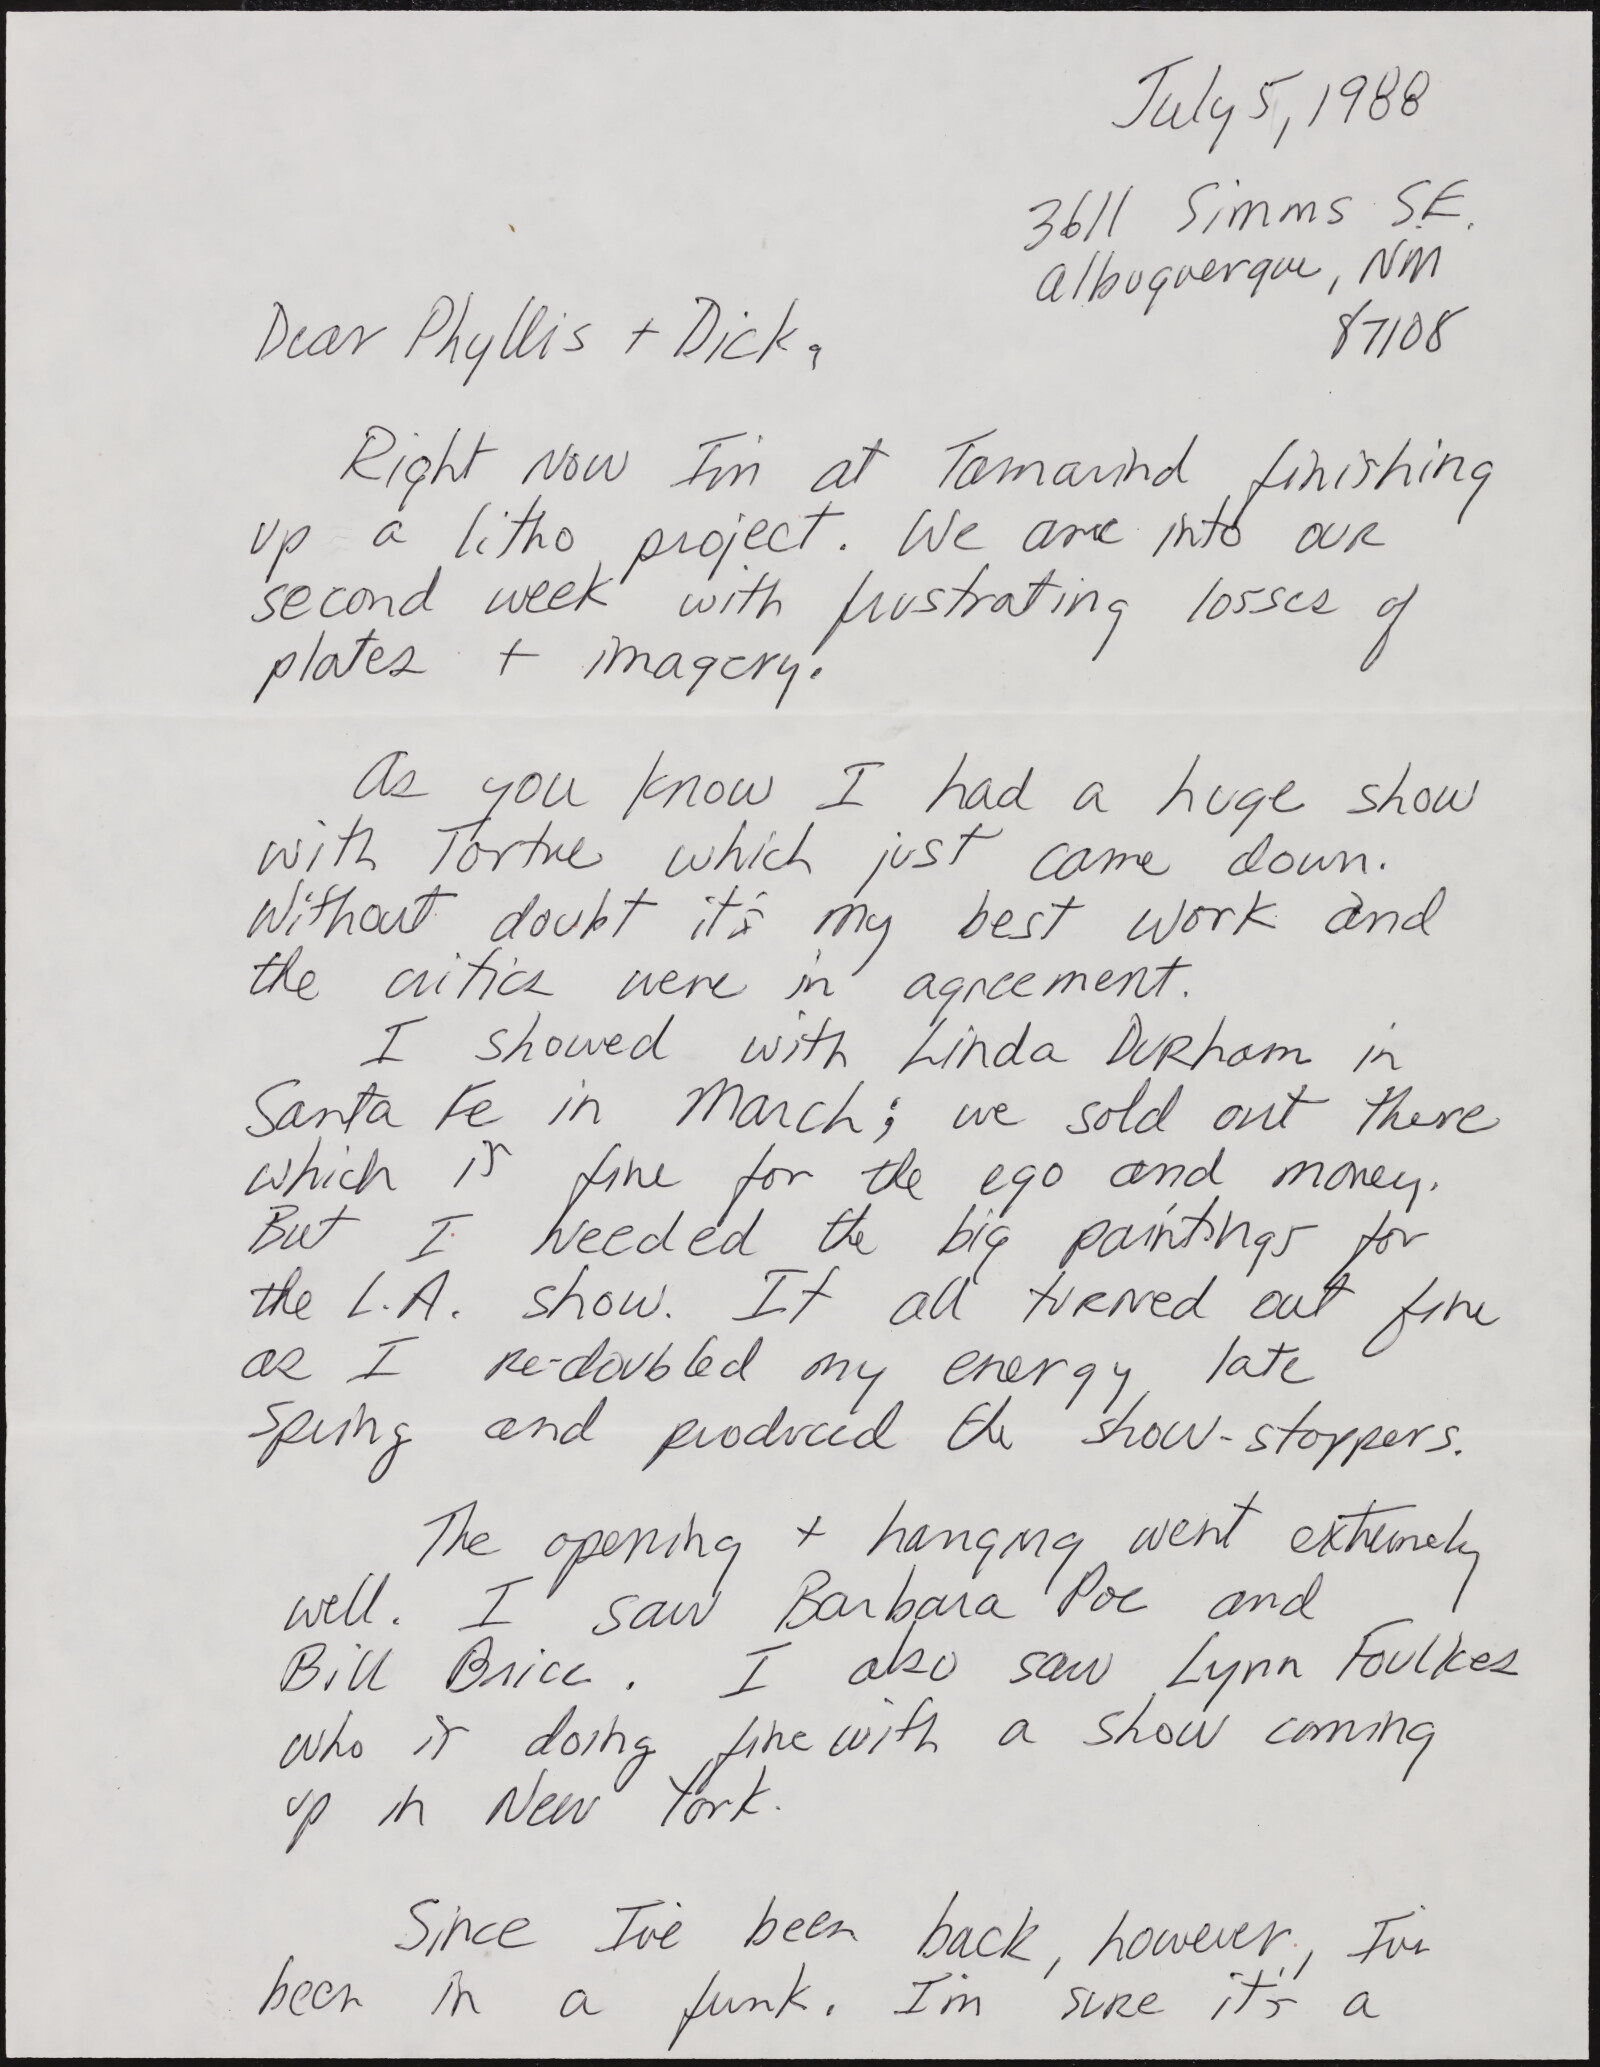 July 5, 1988
3611 Simms SE.
Albuquerque, NM
87108
Dear Phyllis + Dick,
Right now I'm at Tamarind finishing
up a litho project. We are into our
second week with frustrating losses of
plates + imagery.
As you know I had a huge show
with Tortue which just came down.
Without doubt it's my best work and
the critics were in agreement.
I showed with Linda Durham in
Santa Fe in March; we sold out there
which is fine for the ego and money.
But I needed the big paintings for
the L.A. show. It all turned out fine
as I re-doubled my energy late
Spring and produced the show-stoppers.
The opening + hanging went extremely
well. I saw Barbara Poe and
Bill Brice. I also saw Lynn Foulkes
who is doing fine with a show coming
up in New York.
Since I've been back, however, I've
been in a funk. I'm sure it's a